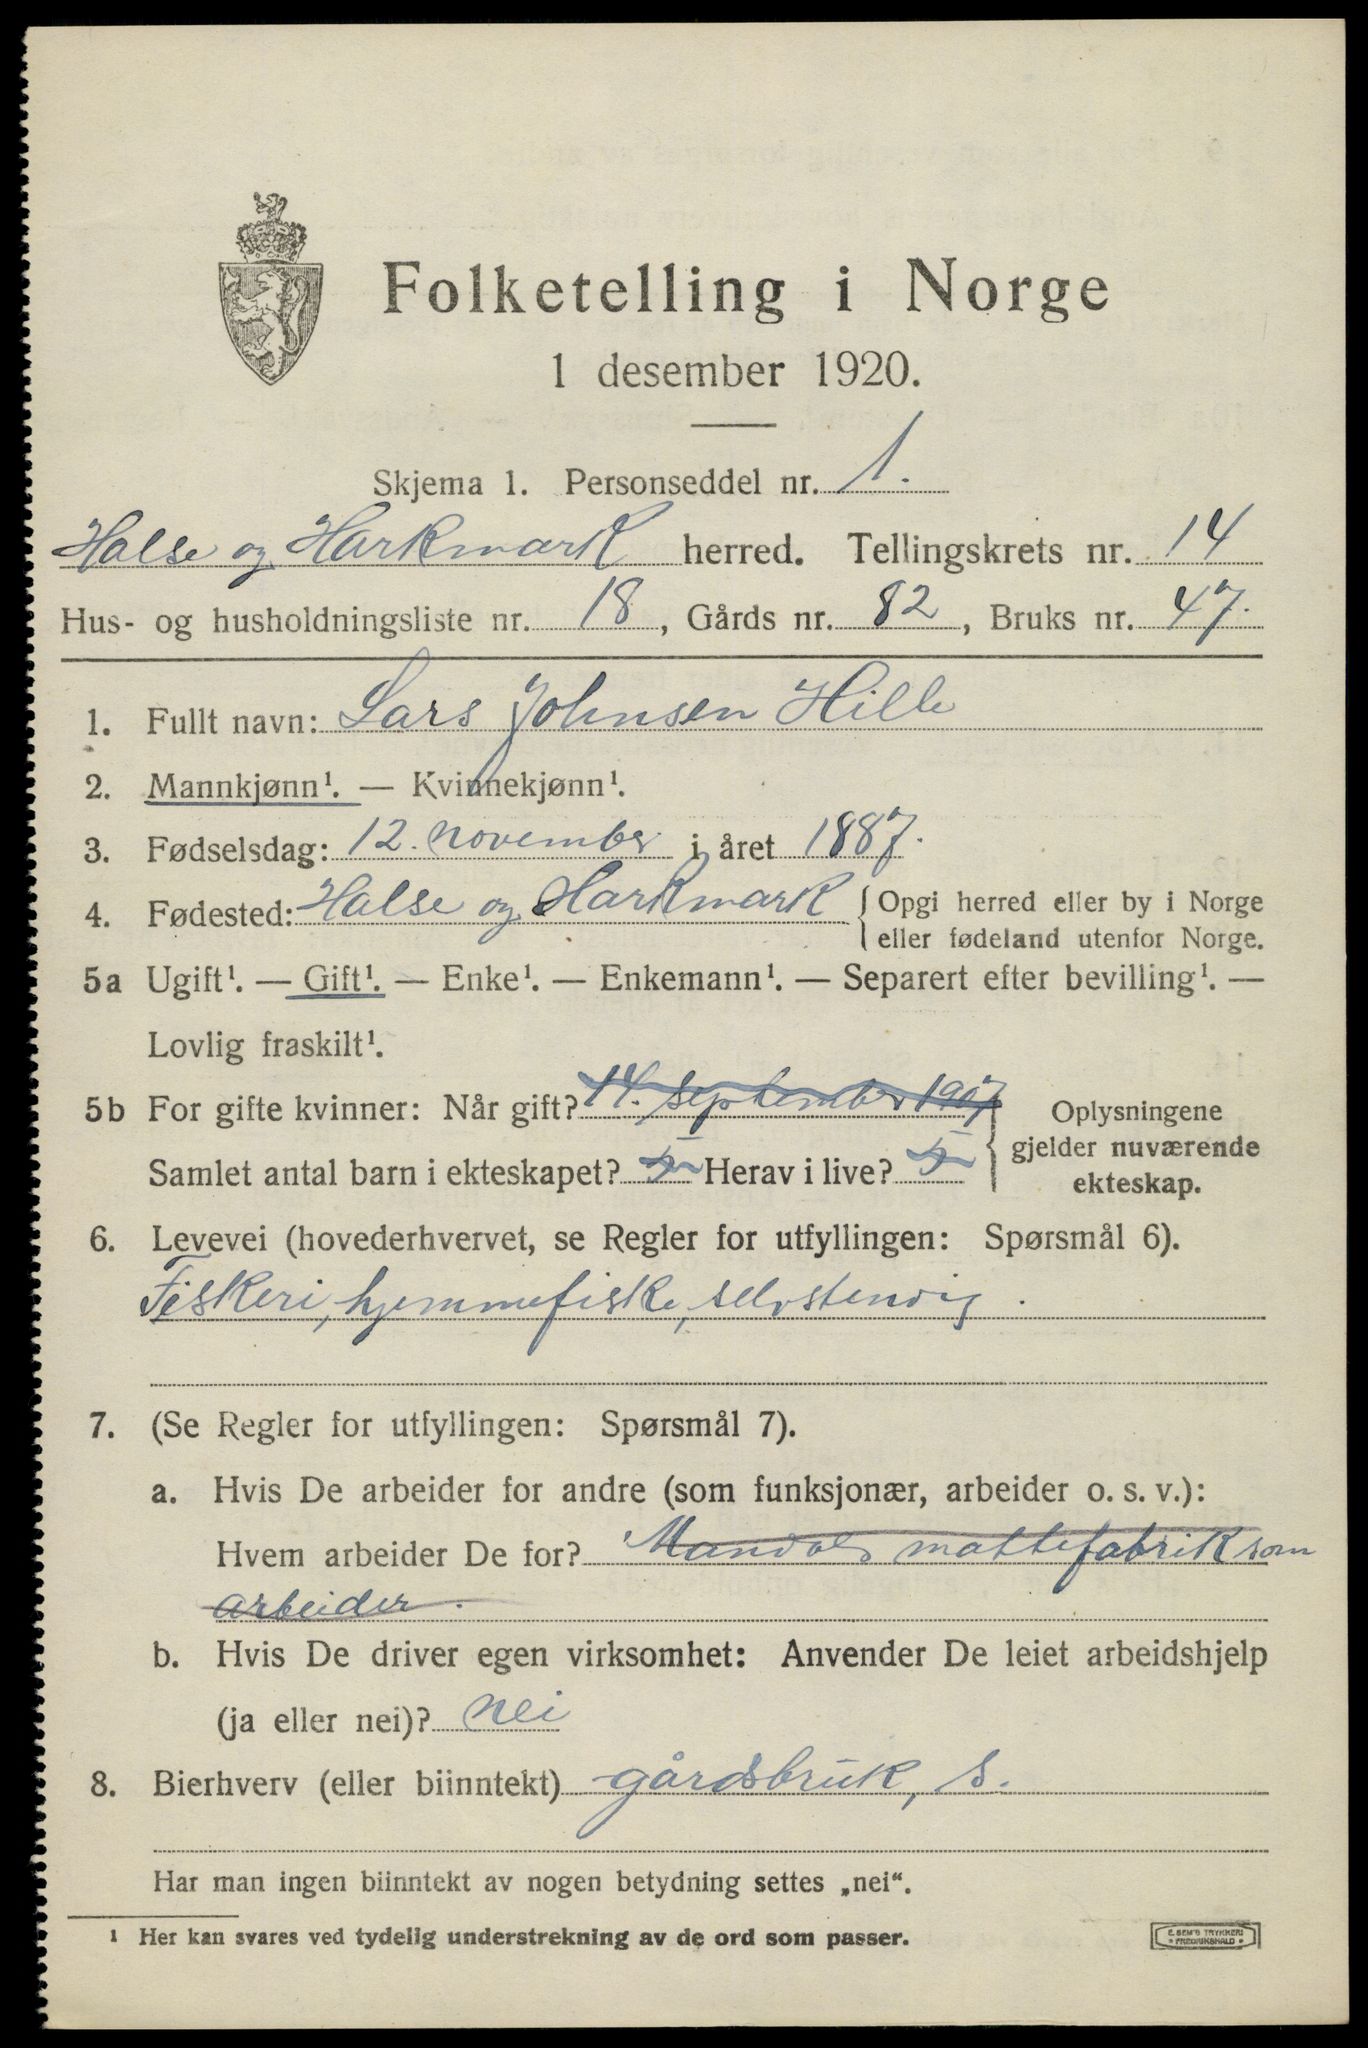 Folketelling i Norge
1 desember 1920.
Skjema 1. Personseddel nr. 1.
Halse og Harkmark herred. Tellingskrets nr. 14
Hus- og husholdningsliste nr. 18, Gårds nr. 82, Bruks nr. 47.
1. Fullt navn: Lars Johnsen Hille
2. Mannkjønn¹. — Kvinnekjønn¹.
3. Fødselsdag: 12. november i året 1887.
4. Fødested: Halse og Harkmark { Opgi herred eller by i Norge
eller fødeland utenfor Norge.
5a Ugift¹. — Gift¹. — Enke¹. — Enkemann¹. — Separert efter bevilling¹. —
Lovlig fraskilt¹.
5b For gifte kvinner: Når gift? 14. september 1907 } Oplysningene
gjelder nuværende
Samlet antal barn i ekteskapet? 5 Herav i live? 5
ekteskap.
6. Levevei (hovederhvervet, se Regler for utfyllingen: Spørsmål 6).
Fiskeri, hjemmefiske, selvstendig.
7. (Se Regler for utfyllingen: Spørsmål 7).
a. Hvis De arbeider for andre (som funksjonær, arbeider o. s. v.):
Hvem arbeider De for? Mandals mattefabrik som
arbeider.
b. Hvis De driver egen virksomhet: Anvender De leiet arbeidshjelp
(ja eller nei)? nei
8. Bierhverv (eller biinntekt) gårdsbruk, s.
Har man ingen biinntekt av nogen betydning settes „nei“.
¹ Her kan svares ved tydelig understrekning av de ord som passer.
E. SEM'S TRYKKERI
FREDRIKSHALD